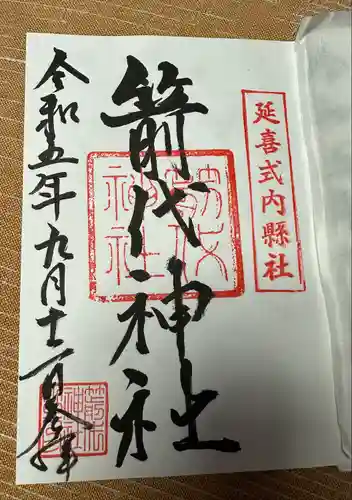 延喜式内縣社
箭代神社
箭代神社
令和五年九月十一日奉拝